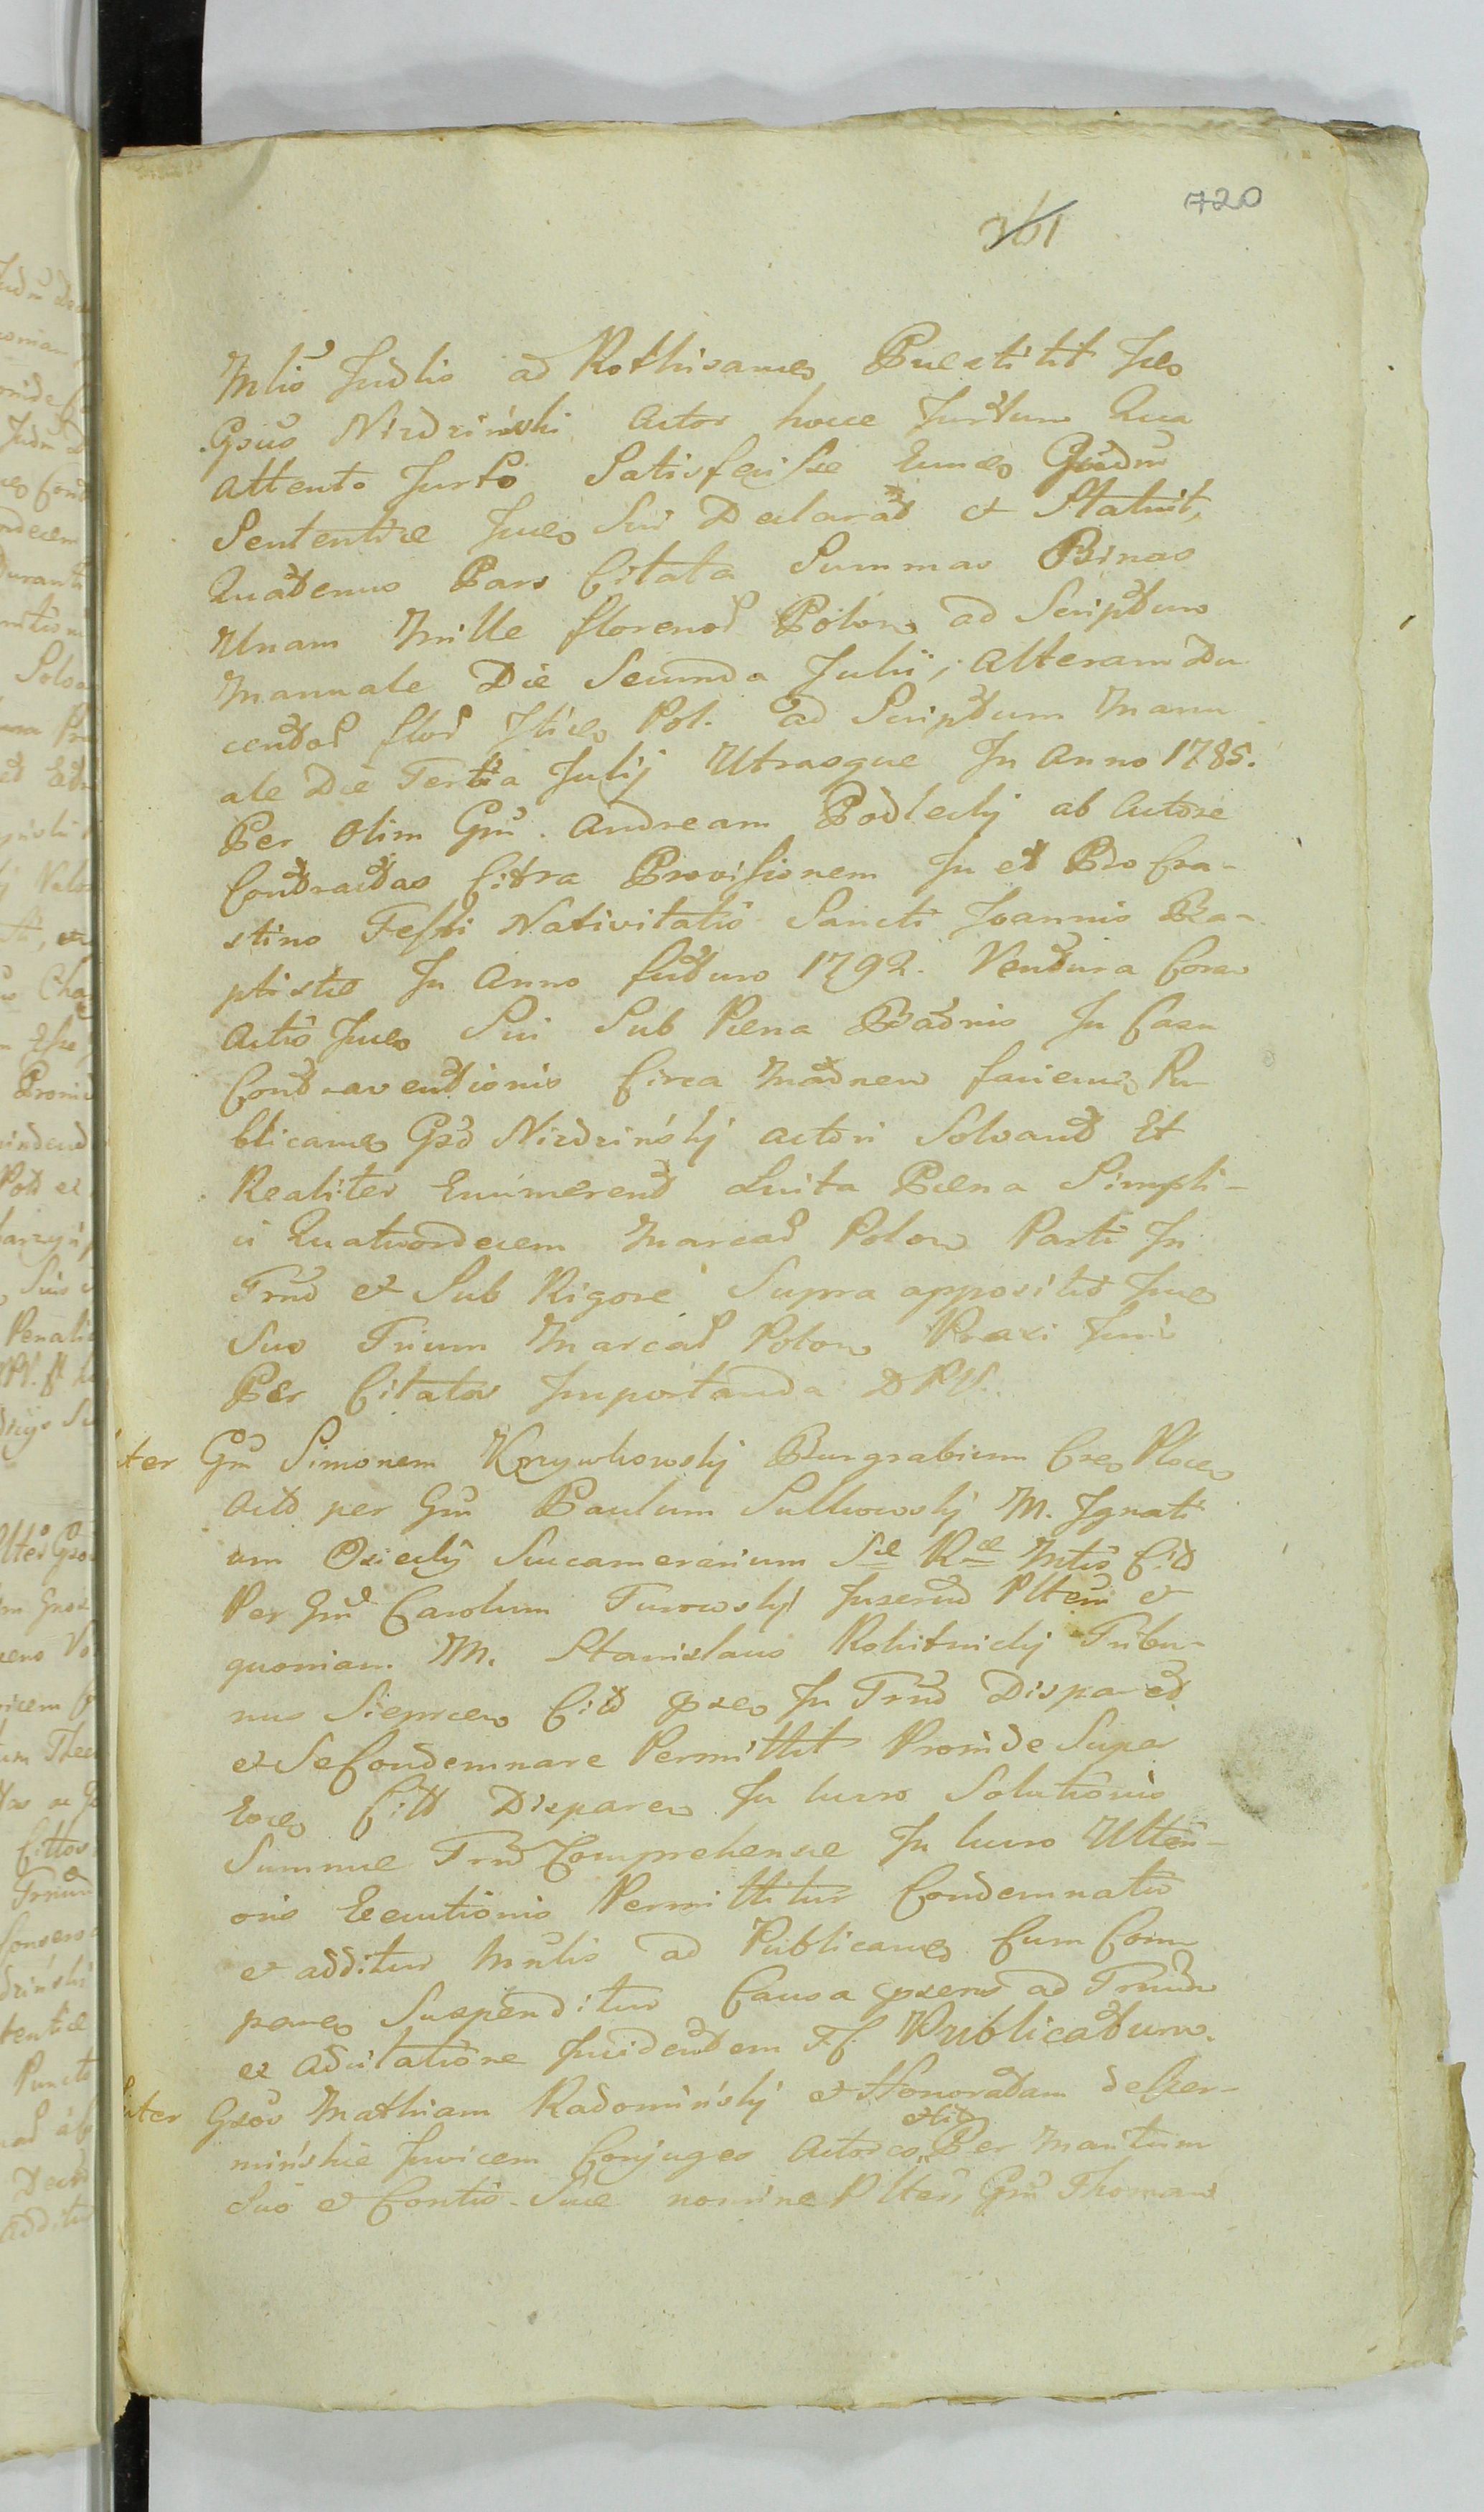 720
361
Mlis Judlis ad Rothisameo Praestitit Iseo
Gsus Nizdzinski Actor hocce Jurtum Qua
attento Jurto Satisfecisse Eumeo Gsudm
Sententiae Jueo Sui Declarat et Statuit,
Quatenus Pars Citata Summas Binas
Unam Mille florenor Polon ad Scriptum
Manuale Die Secunda Julii, Alteram Du
centor flor Itieo Pol. ad Scriptum Manu
ale Die Tertia Julij Utrasque In Anno 1785.
Per Olim Gm. Andream Podlecki ab Actore
Contractas Citra Provisionem In et Pro Cra-
stino Festi Nativitatis Sancti Joannis Ba-
ptistae In Anno futuro 1792. Ventura Coram
Actis Jueo Sui Sub Pena Badnis In Casu
Contraventionis Circa Madnem faciemeo Pu
blicameo Gso Nizdzinskj actori Solvant Et
Realiter Enumerent Luita Paena Simpli-
ci Quatuordecem Marcar Polon Parti In
Trno et Sub Rigore Supra appositis Jueo
Suo Trium Marcar Polon Praxi Juris
Per Citatos Importanda DPV.
ter Gm Simonem Krzywkowskj Burgrabium Cseo Ploceo
Acto per Gm Paulum Sulkowskj M. Ignati
um Osieckj Succamerarium Sae Rae Mtis Cit
Per Gm Carolum Turowskj Inserend Plteri et
quoniam M. Stanislaus Rokitnickj Tribu-
nus Sieprcen Citt pseo In Trno Disparet
et Se Condemnare Permittit Proinde Supa
Eoeo Citt Dispareo In lucro Solutionis
Summae Trno Comprehensae In lucro Ulteri-
oris Executionis Permittitur Condemnatio
et additur Mulis ad Publicameo Cum Com
pareo Suspenditur Causa psens ad Trmin
ex Adcitatione Incidentem Ff. Publicatum.
ter Gsos Mathiam Radominskj et Honoratam de Szer-
minskie Invicem Conjuges Actores etiam Per Maritum
Suo et Contis Suae nomine Plter, Gm Thomam